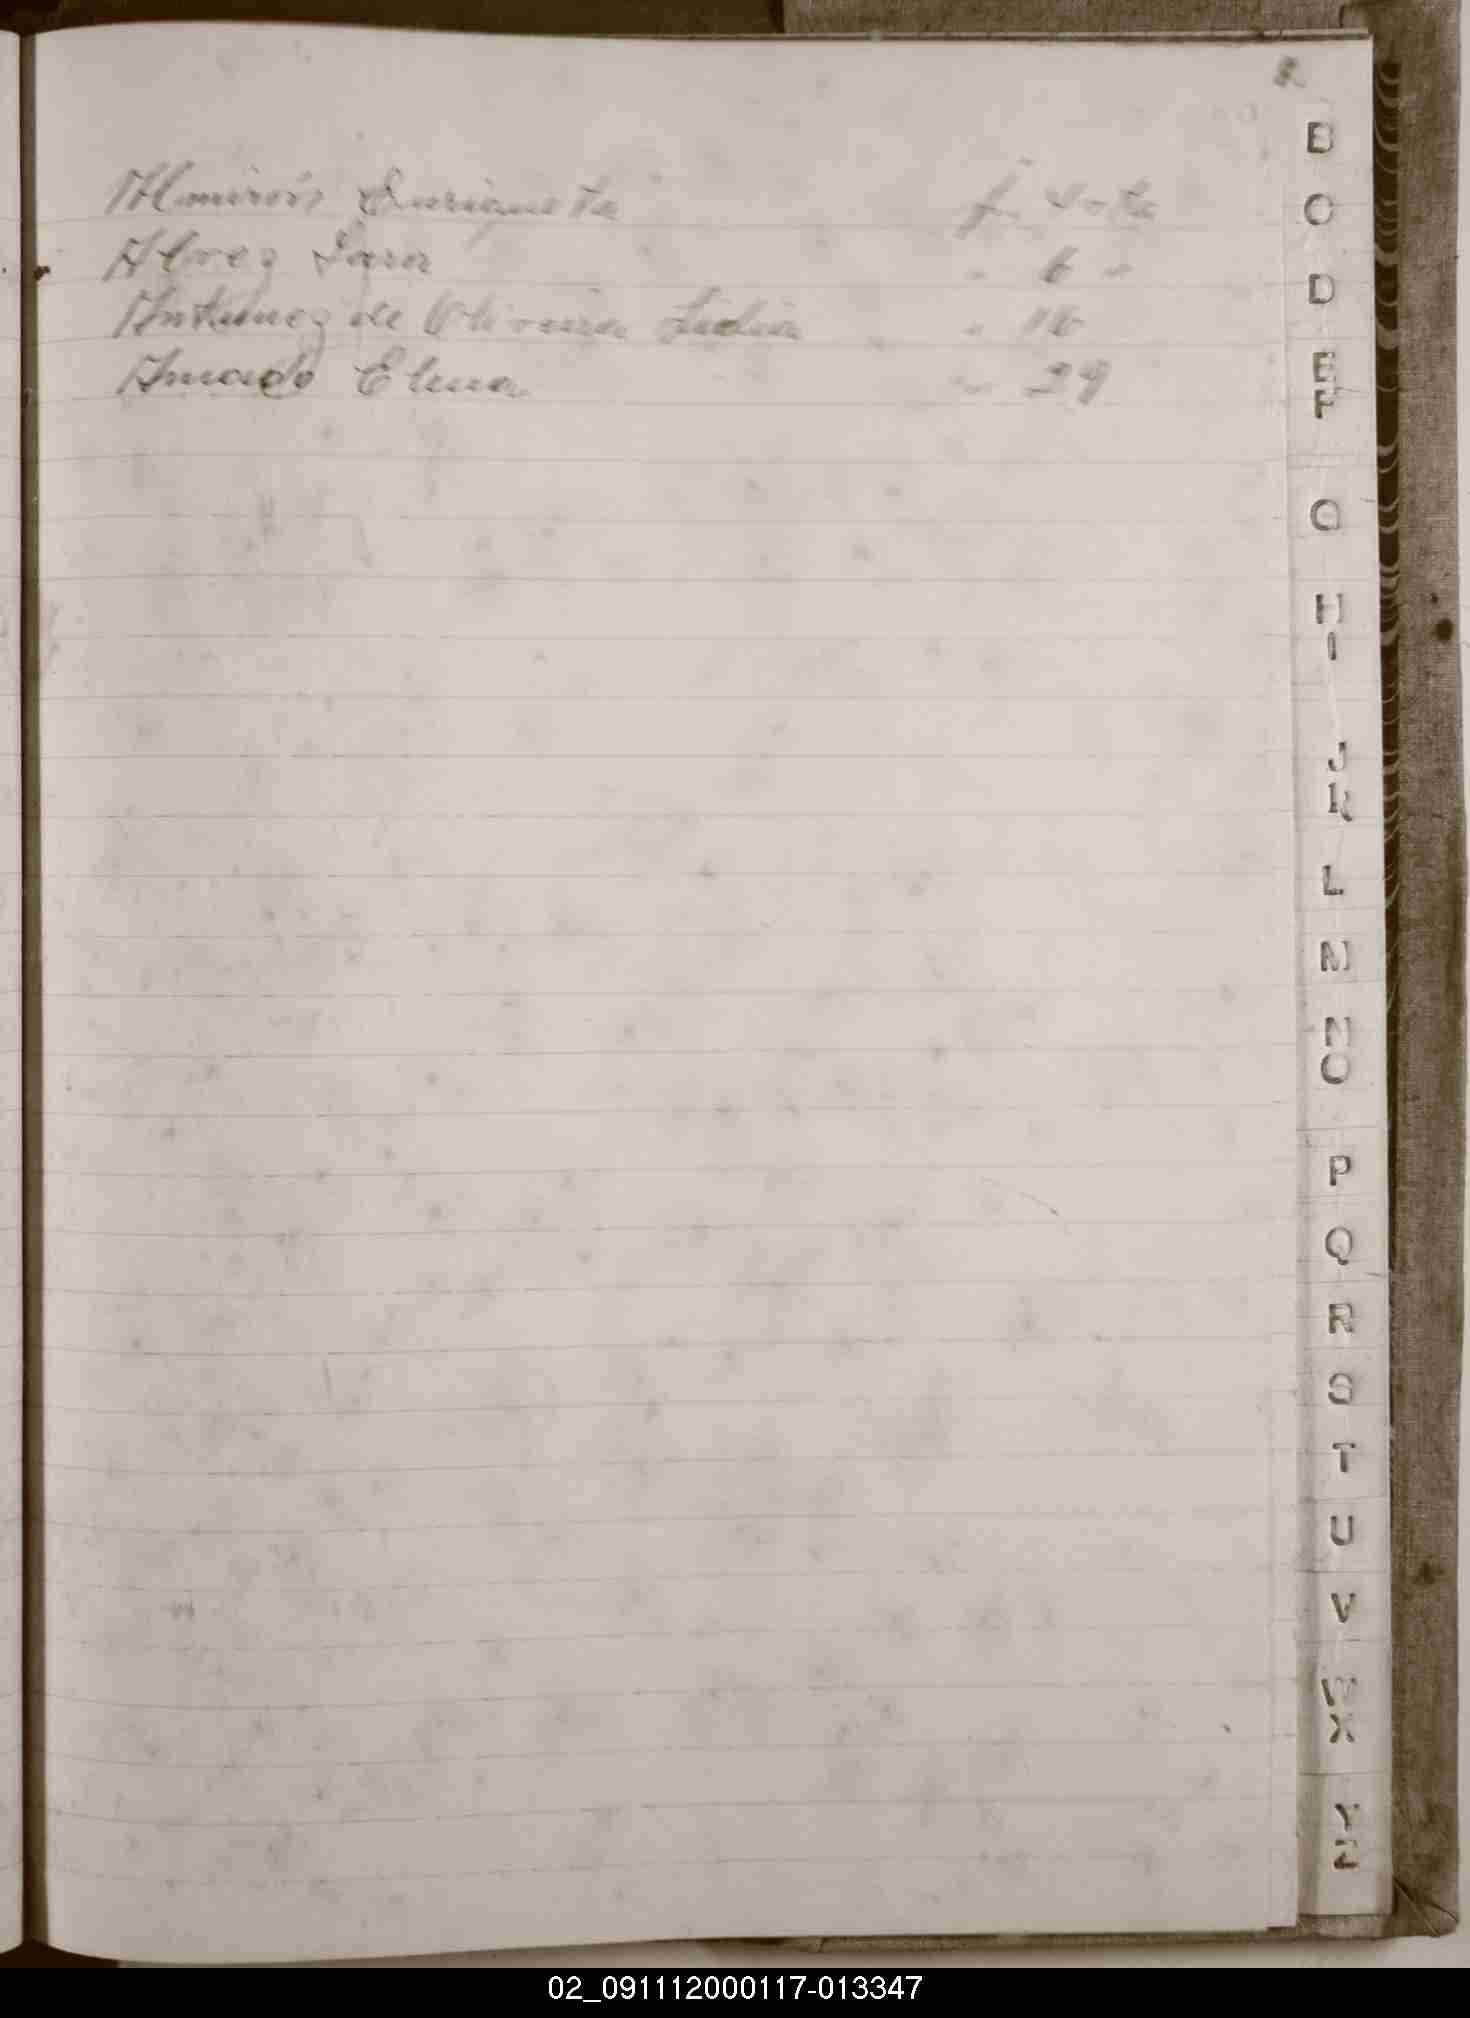 Almirón Enriqueta f. vota
Alvez Sara " 6 "
Antunez de Oliveira Lidia " 18
Amado Elena " 29
B
C
D
E
F
G
H
I
J
K
L
M
N
O
P
Q
R
S
T
U
V
W
X
Y
Z
02_091112000117-013347